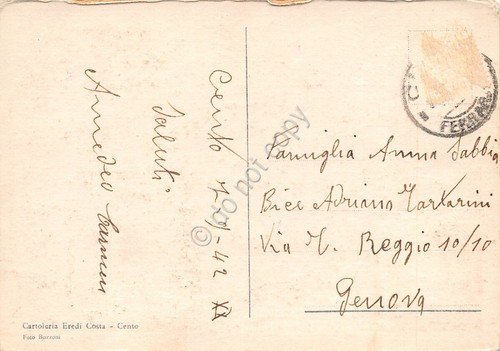 Cento 7-9-42 XX
Saluti
Amedeo Carmen
Famiglia Anna Sabbia
Bice Adriano Tartarini
Via M. Reggio 10/10
Genova
FERRAR
do not copy
Cartoleria Eredi Costa - Cento
Foto Borzoni